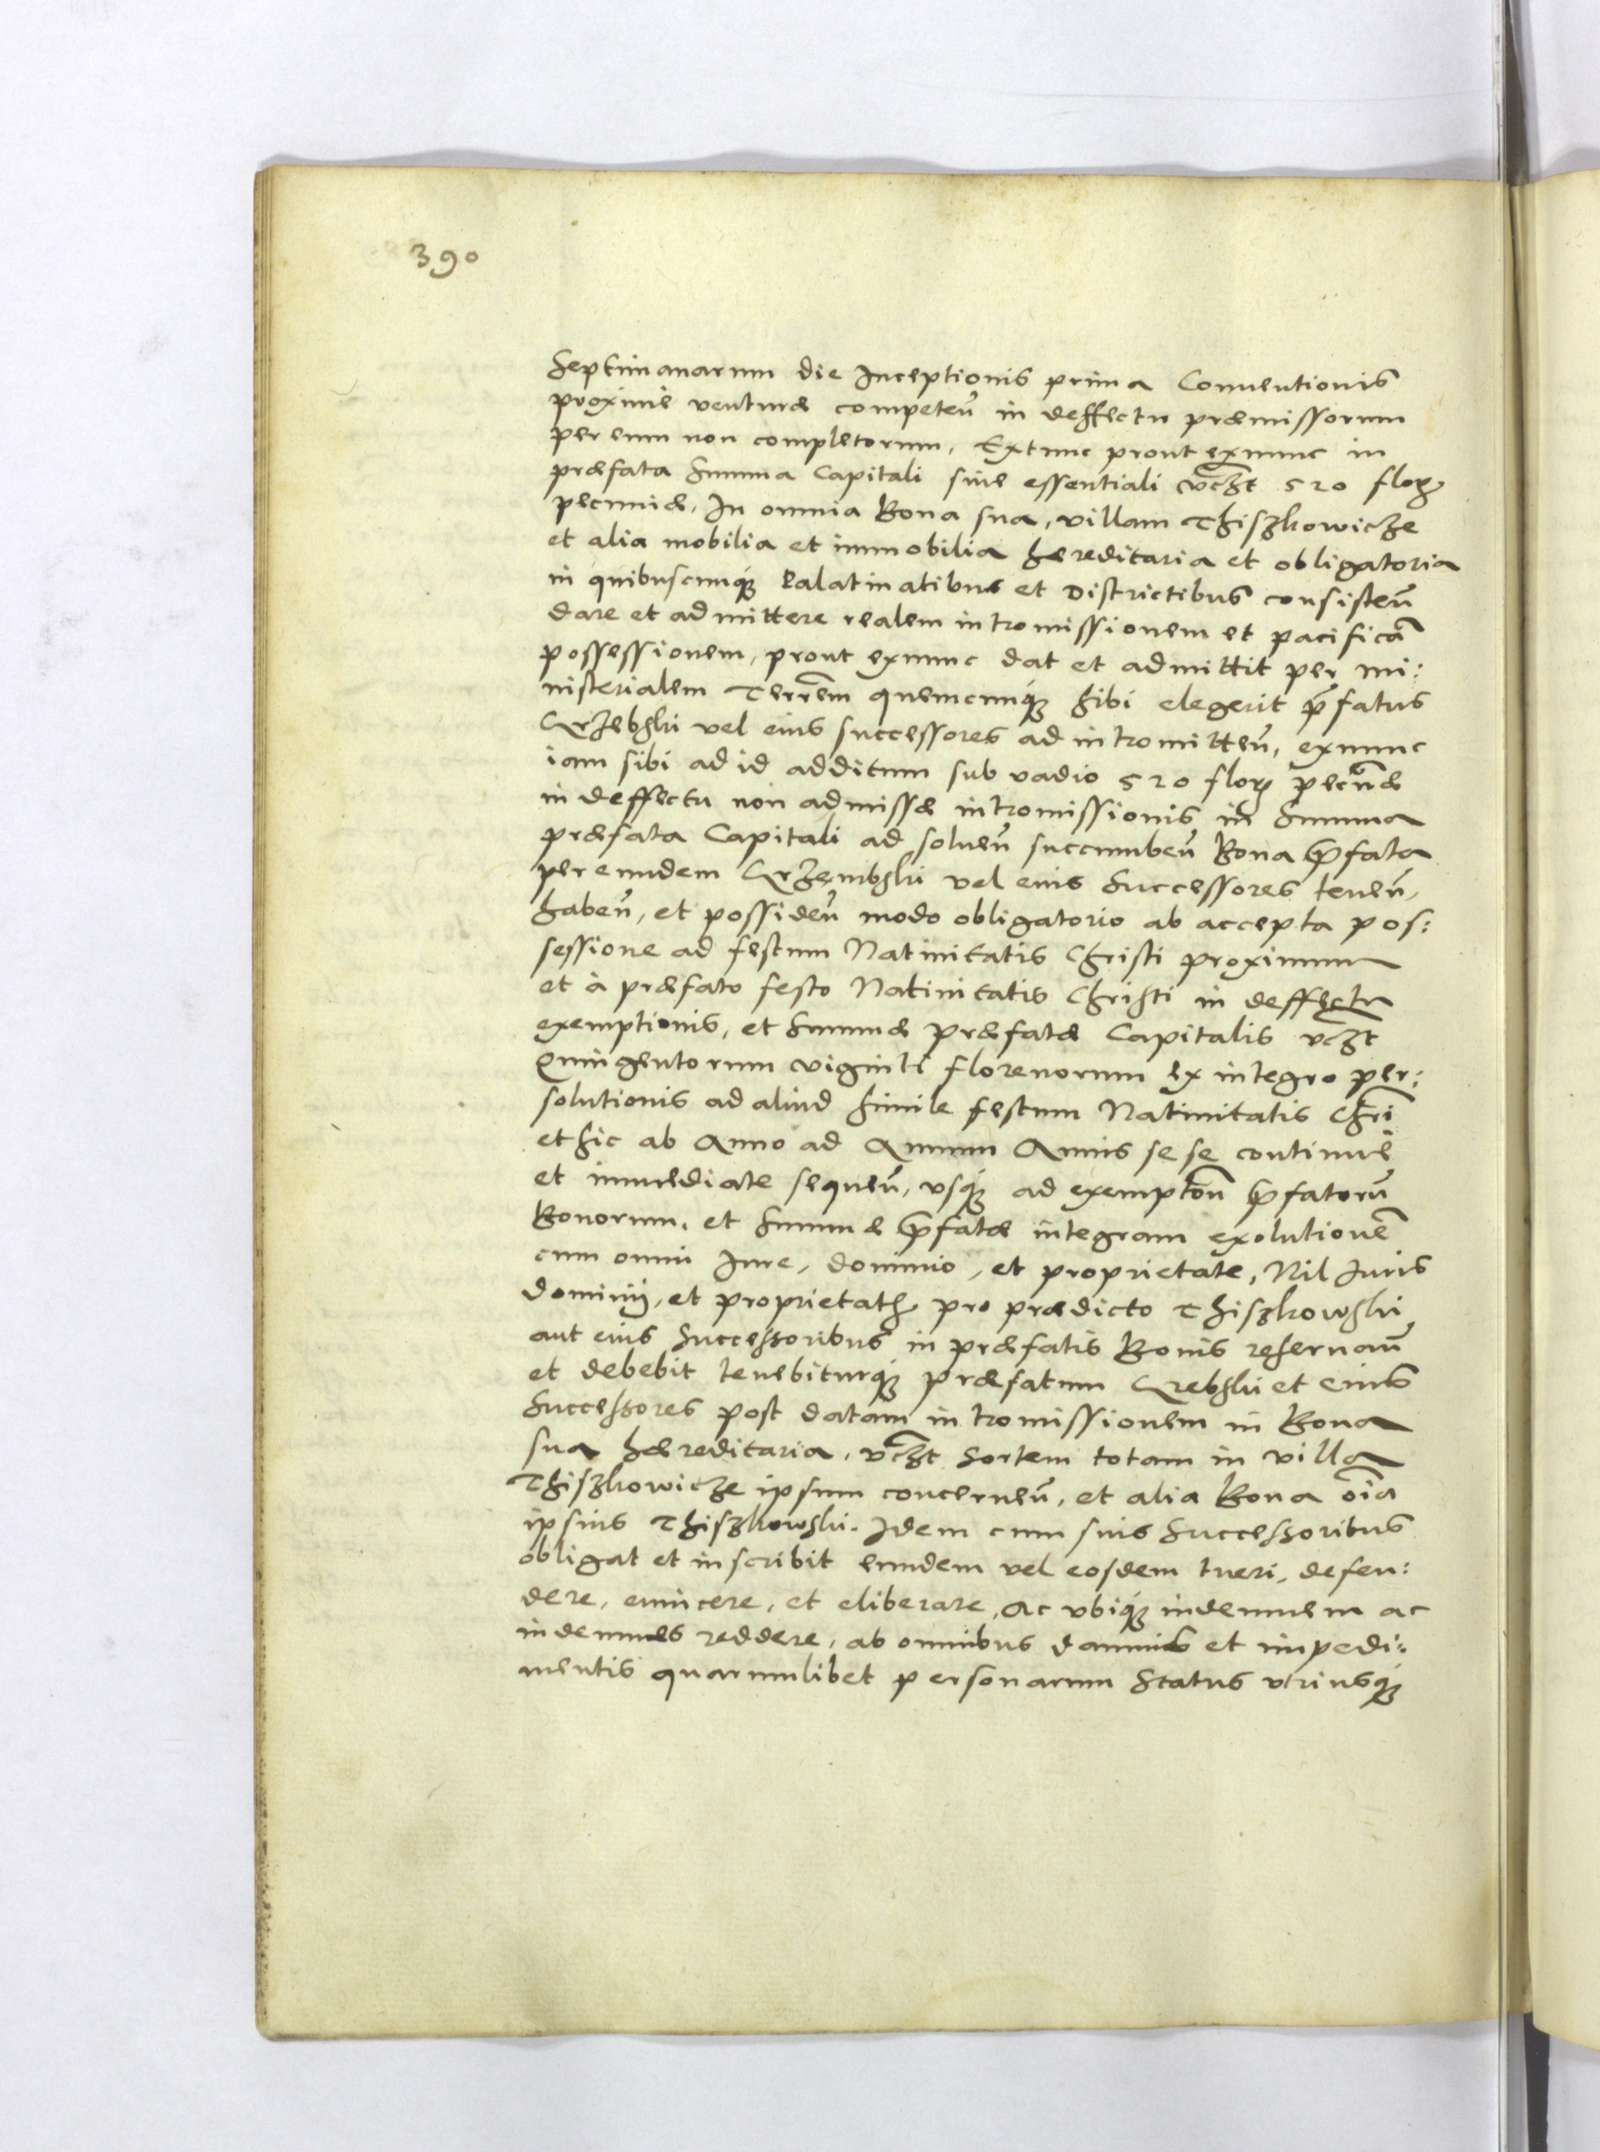 390
Septimanarum die Inceptionis prima Conuentionis
proxime venturæ competeñ in deffectu præmissorum
per eum non completorum, Extunc prout exnunc in
præfata Summa Capitali siue essentiali vcꝫt 520 floꝝ
pecuniæ, In omnia Bona sua, villam Thiszkowicze
et alia mobilia et immobilia hæreditaria et obligatoria
in quibuscunqꝫ Palatinatibus et Districtibus consisteñ
dare et admittere realem intromissionem et pacificã
possessionem, prout exnunc dat et admittit per mi:
nisterialem Terrẽm quemcunqꝫ sibi elegerit p̃fatus
Krzebski vel eius successores ad intromitteñ, exnunc
iam sibi ad id additum sub vadio 520 floꝝ pecũæ
in deffectu non admissæ intromissionis in Summa
præfata Capitali ad solueñ succumbeñ Bona p̃fata
per eundem Krzembski vel eius Successores teneñ,
habeñ, et possideñ modo obligatorio ab accepta pos:
sessione ad festum Natiuitatis Christi proximum
et à præfato festo Natiuitatis Christi in deffectu
exemptionis, et Summæ præfatæ Capitalis vcꝫt
Quingentorum viginti florenorum ex integro per:
solutionis ad aliud simile festum Natiuitatis Chri
et sic ab Anno ad Annum Annis se se continuè
et immediate sequeñ, vsqꝫ ad exemptõm p̃fatorũ
Bonorum, et Summæ p̃fatæ integram exolutionẽ
cum omni Iure, dominio, et proprietate, Nil Iuris
dominij, et proprietatꝭ pro prædicto Thiszkowski
aut eius Successoribus in præfatis Bonis reseruañ
et debebit tenebiturqꝫ præfatum Krebski et eius
Successores post datam intromissionem in Bona
sua hæreditaria, vcꝫt Sortem totam in villa
Thiszkowicze ipsum concerneñ, et alia Bona oĩa
ipsius Thiszkowski. Idem cum suis Successoribus
obligat et inscribit eundem vel eosdem tueri, defen:
dere, euincere, et eliberare, Ac vbiqꝫ indemnem ac
indemnes reddere, ab omnibus damnis et impedi:
mentis quarumlibet personarum Status vtriusqꝫ